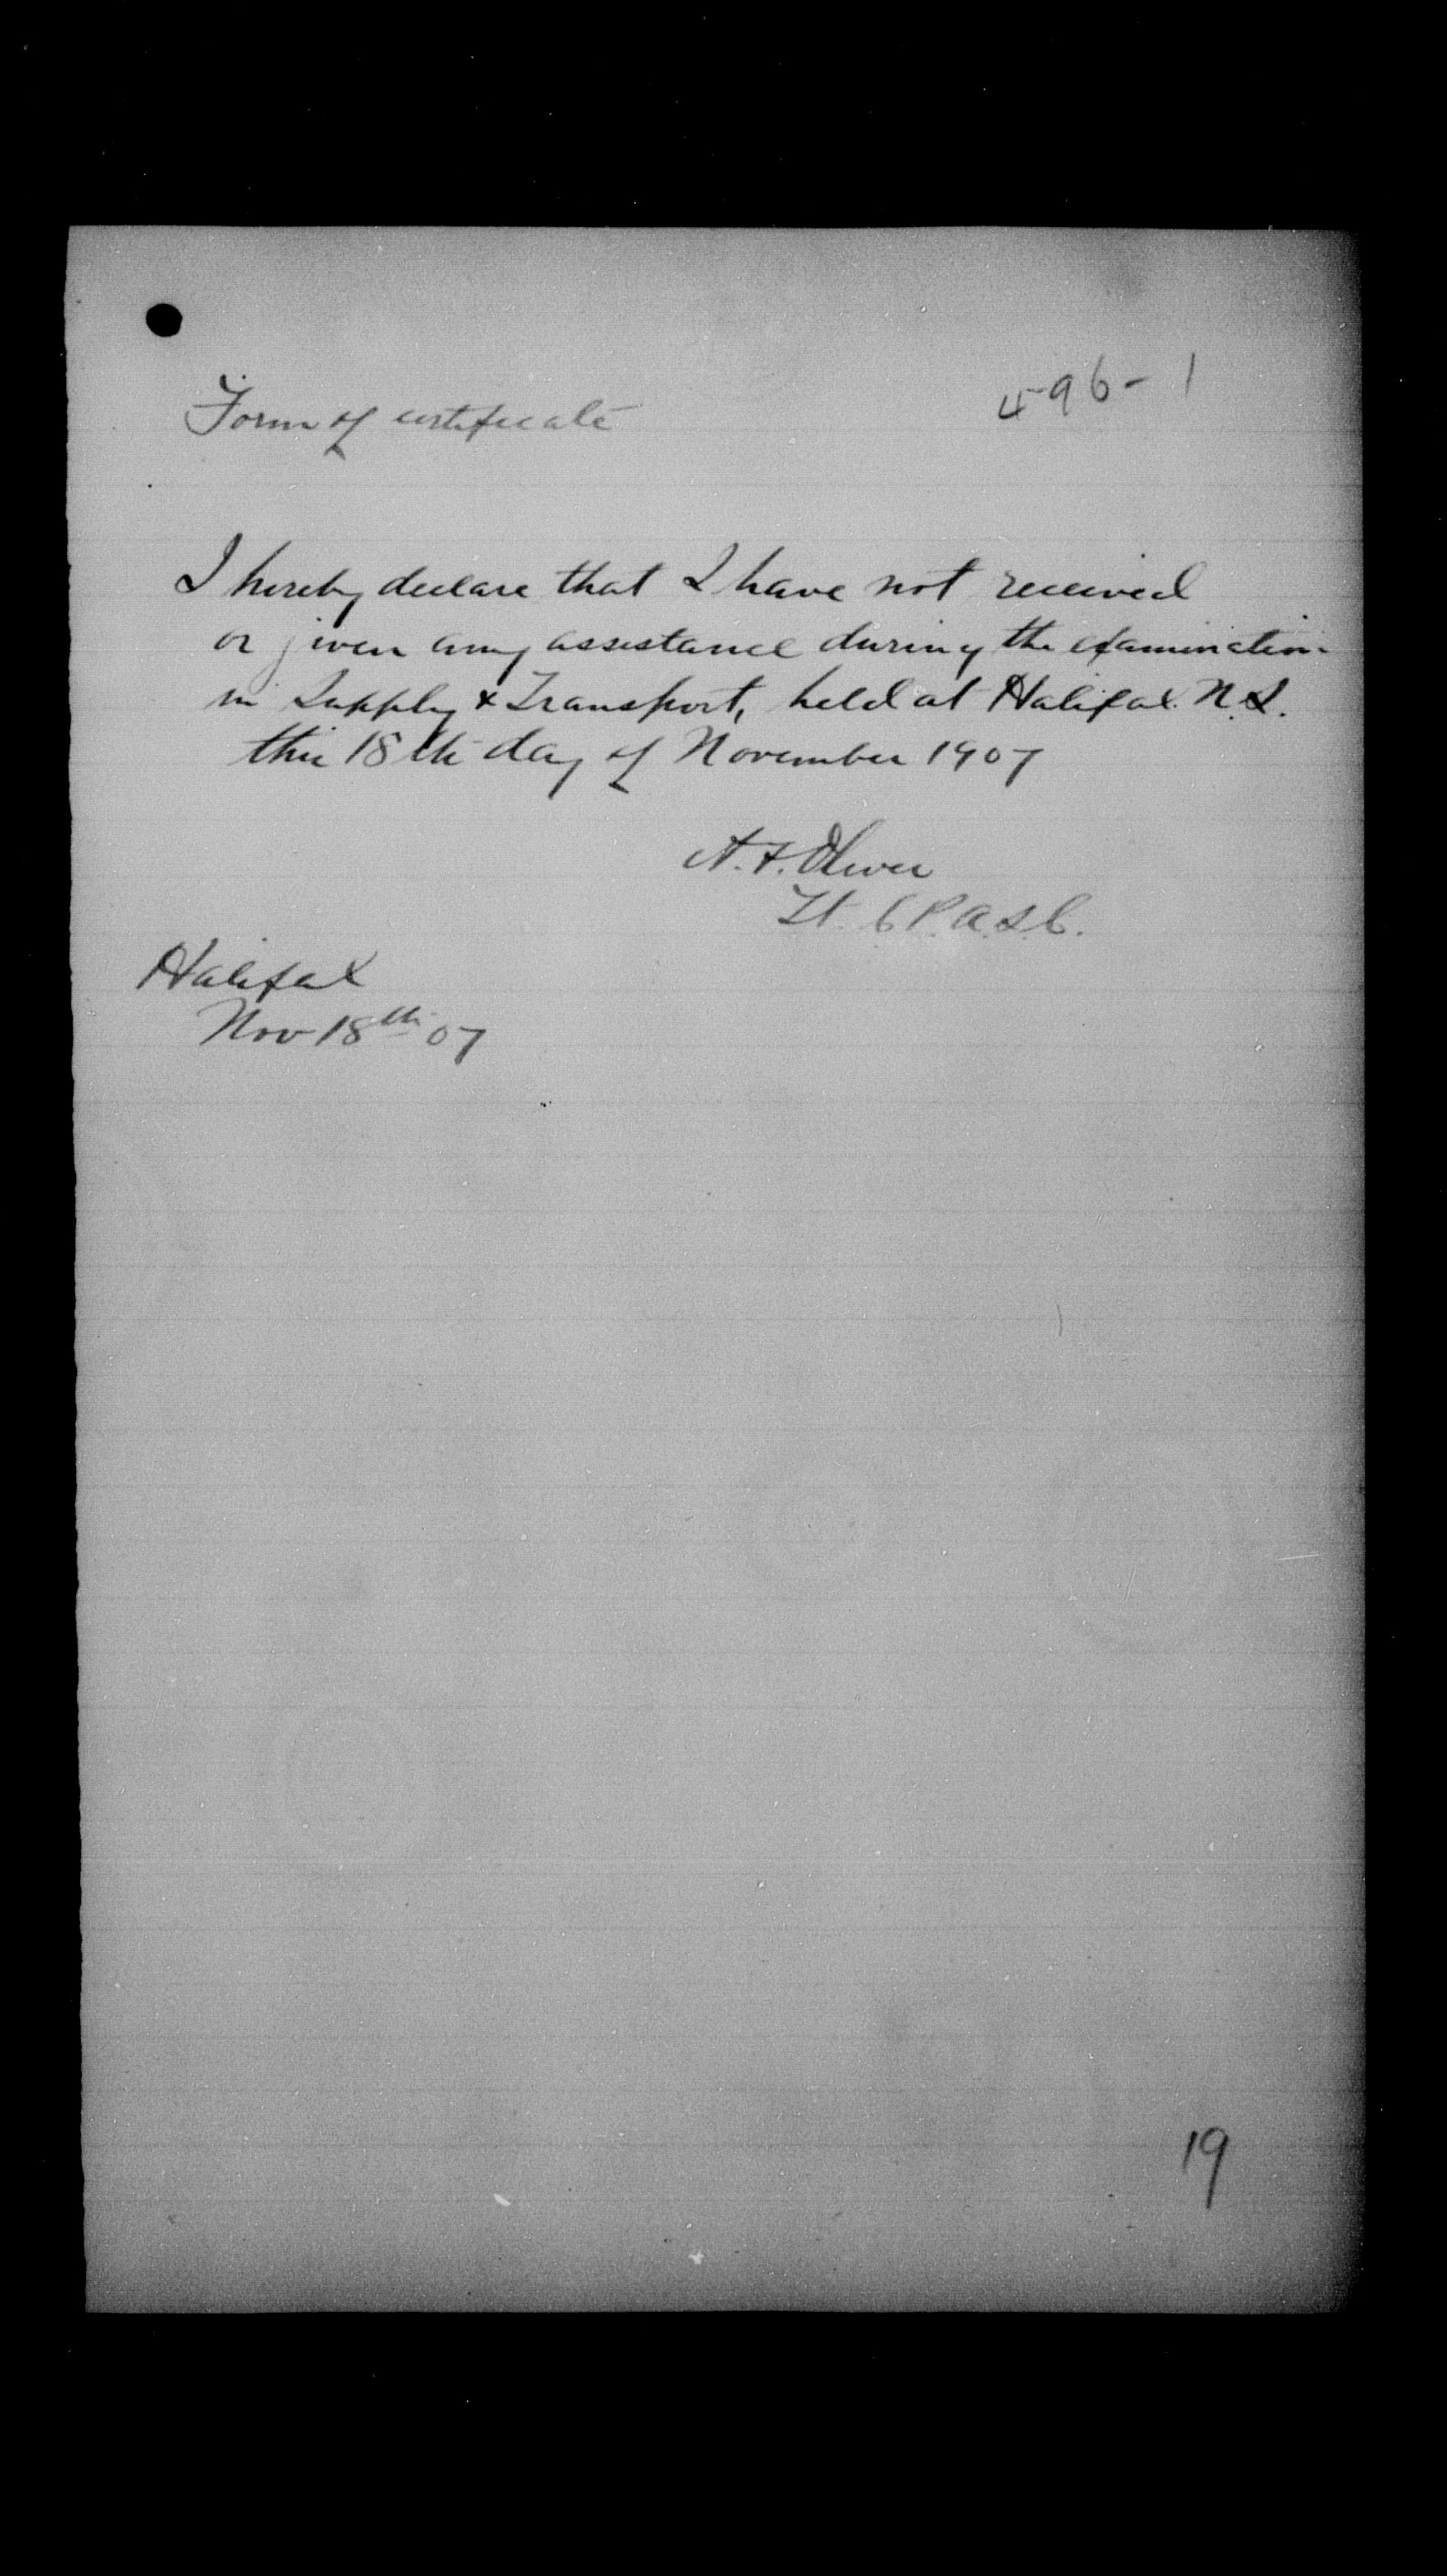 Form of certificate
496-1
I hereby declare that I have not received
or given any assistance during the examination
in Supply & Transport, held at Halifax N.S.
this 18th day of November 1907
Lt. C.P.A.S.C.
Halifax
Nov 18th 07
19